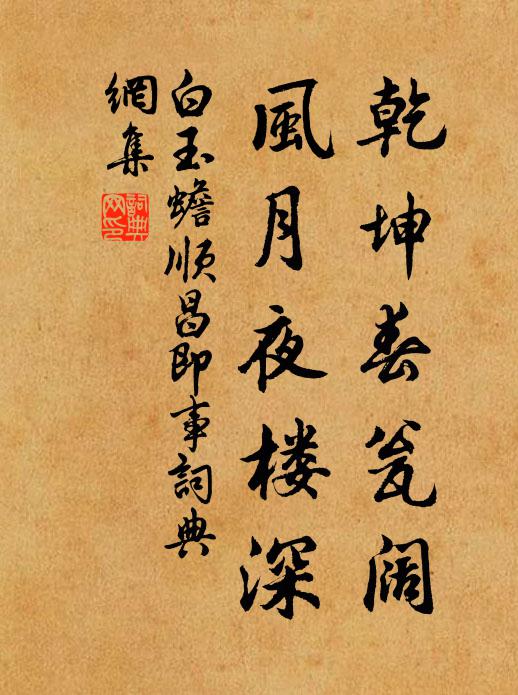 乾坤春瓮阔
風月夜楼深
白玉蟾順昌即事詞典
網集
詞典网印